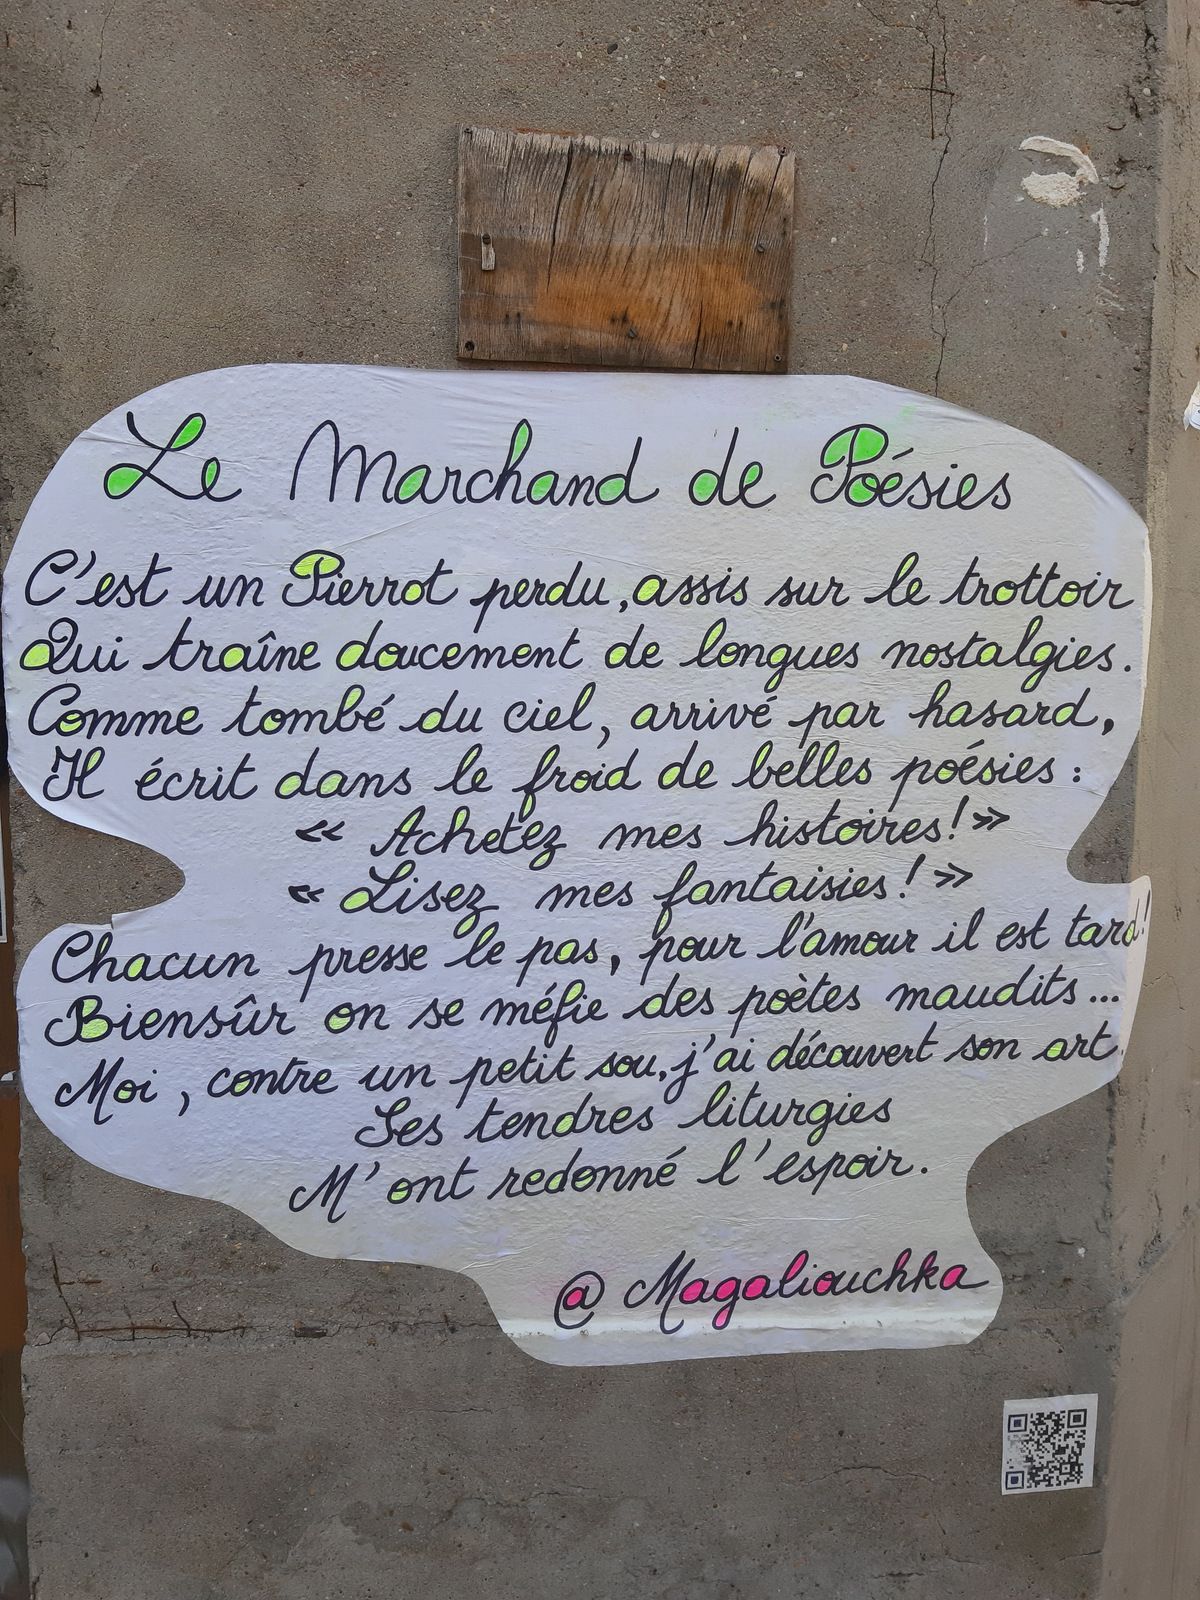 Le Marchand de Poésies
C'est un Pierrot perdu, assis sur le trottoir
Qui traîne doucement de longues nostalgies.
Comme tombé du ciel, arrivé par hasard,
Il écrit dans le froid de belles poésies :
« Achetez mes histoires! »
« Lisez mes fantaisies! »
Chacun presse le pas, pour l'amour il est tard!
Biensûr on se méfie des poètes maudits...
Moi, contre un petit sou, j'ai découvert son art.
Ses tendres liturgies
M'ont redonné l'espoir.
@ Magaliouchka